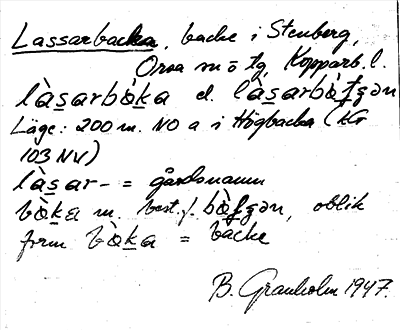 Lassarbacka, backe i Stenberg,
Orsa sn o tg, Kopparb. l.
làs̲arbòk̲a el. làs̲arbòt̲ʒən
Läge: 200 m. NO a i Högbacka (KG
103 NV)
làs̲ar- = gårdsnamn
bòk̲a m. best. f. bòt̲ʒən, oblik
form bòk̲a = backe
B. Granholm 1947.